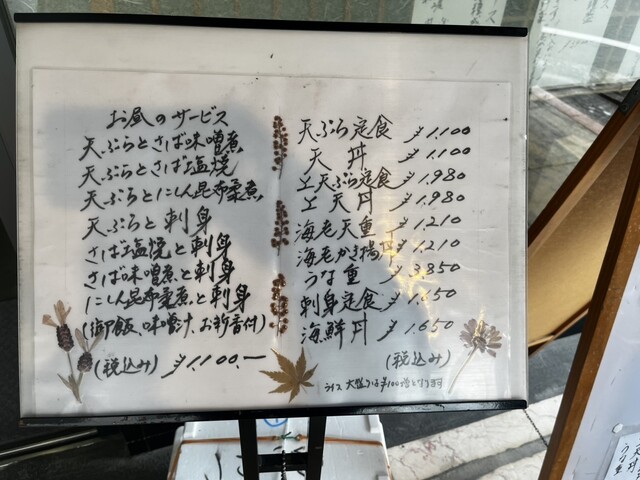 お昼のサービス
天ぷらとさば味噌煮
天ぷらとさば塩焼
天ぷらとにしん昆布柔煮
天ぷらと刺身
さば塩焼と刺身
さば味噌煮と刺身
にしん昆布柔煮と刺身
(御飯、味噌汁、お新香付)
(税込み) ¥1,100.—
天ぷら定食 ¥1,100
天丼 ¥1,100
上天ぷら定食 ¥1,980
上天丼 ¥1,980
海老天重 ¥1,210
海老かき揚丼 ¥1,210
うな重 ¥3,850
刺身定食 ¥1,650
海鮮丼 ¥1,650
(税込み)
ライス大盛りは¥100増となります